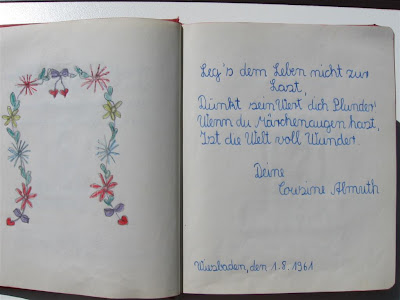 Leg's dem Leben nicht zur
Last,
Dünkt sein Wert dich Plunder
Wenn du Märchenaugen hast,
Ist die Welt voll Wunder.
Deine
Cousine Almuth
Wiesbaden, den 1.8.1961